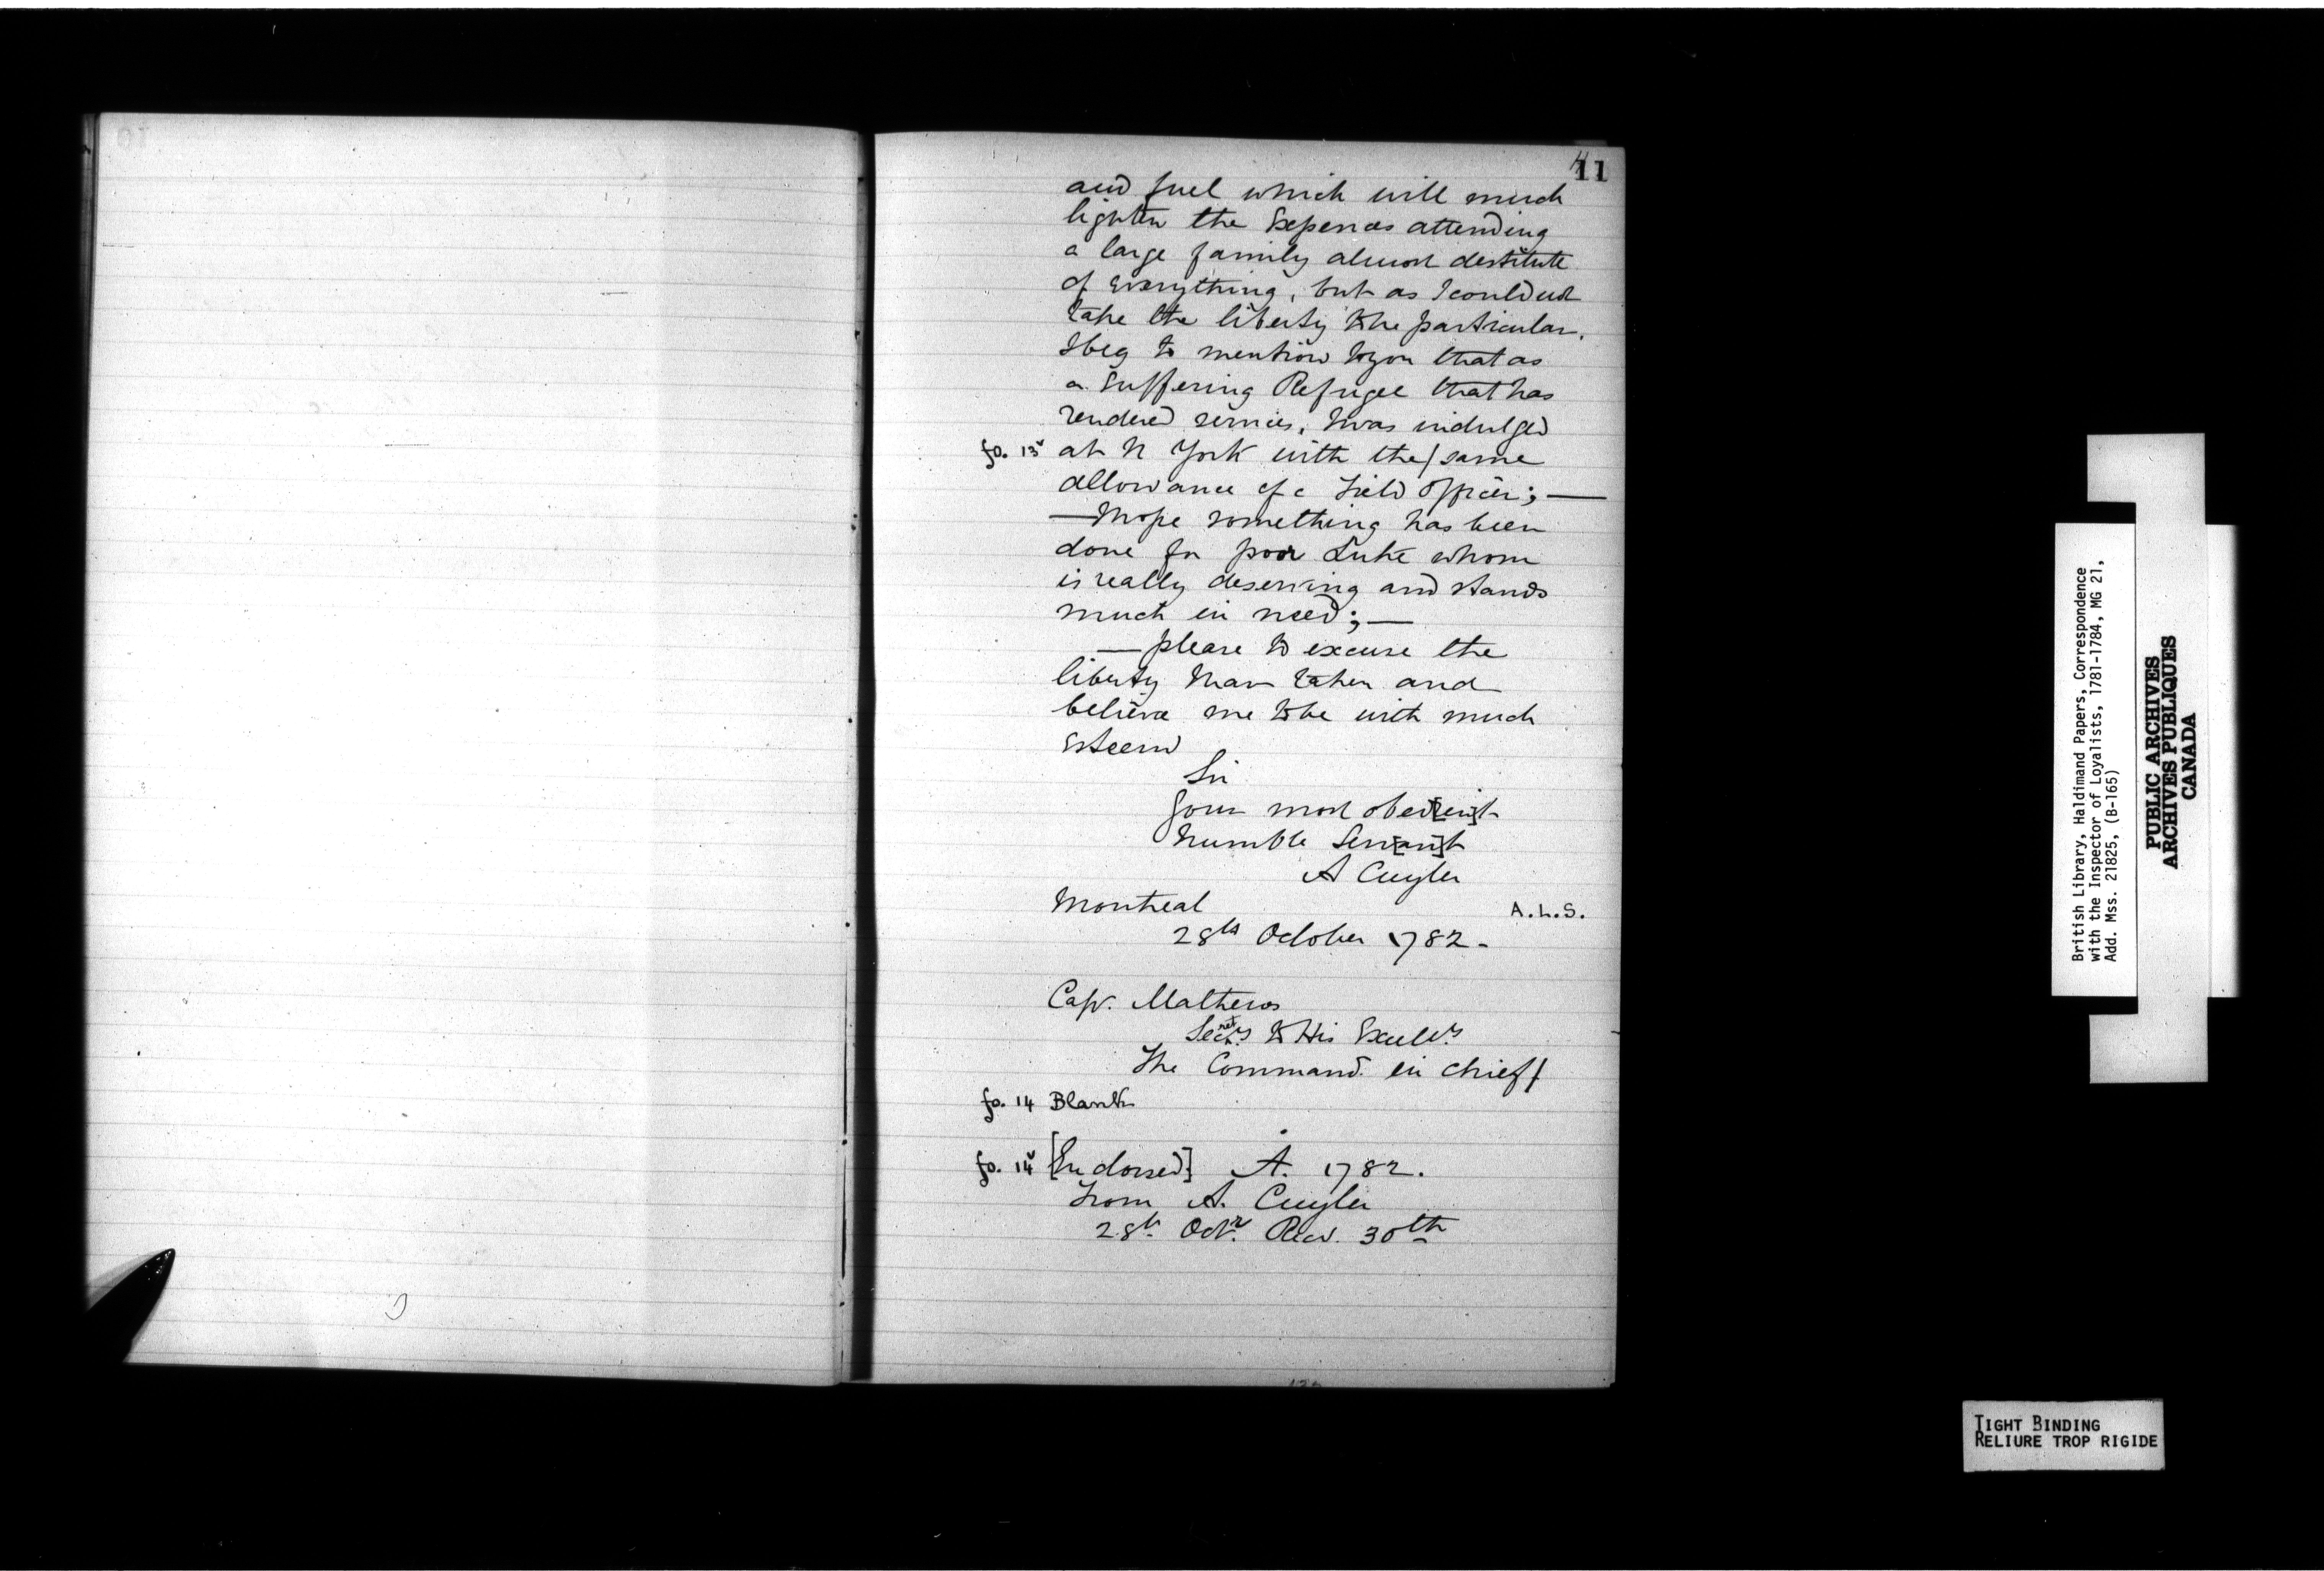 11
and fuel which will much
lighten the Expences attending
a large family almost destitute
of Everything, but as I could not
take the liberty to be particular.
I beg to mention to you that as
a Suffering Refugee that has
rendered services, I was indulged
fo. 13v at N York with the/same
allowance of a Field Officer; —
— I hope something has been
done for poor Luke whom
is really deserving and stands
much in need; —
— please to excuse the
liberty I have taken and
believe me to be with much
Esteem
Sir
Your most obed[ien]t
humble Serv[an]t
A Cuyler
Montreal A.L.S.
28th October 1782-
Capt. Mathews
Secrety to His Excelly
The Command. in chieff
fo. 14 Blank
fo. 14v [Endorsed] A. 1782.
From A. Cuyler
28th Octr. Recd. 30th
British Library, Haldimand Papers, Correspondence
with the Inspector of Loyalists, 1781-1784, MG 21,
Add. Mss. 21825, (B-165)
PUBLIC ARCHIVES
ARCHIVES PUBLIQUES
CANADA
TIGHT BINDING
RELIURE TROP RIGIDE